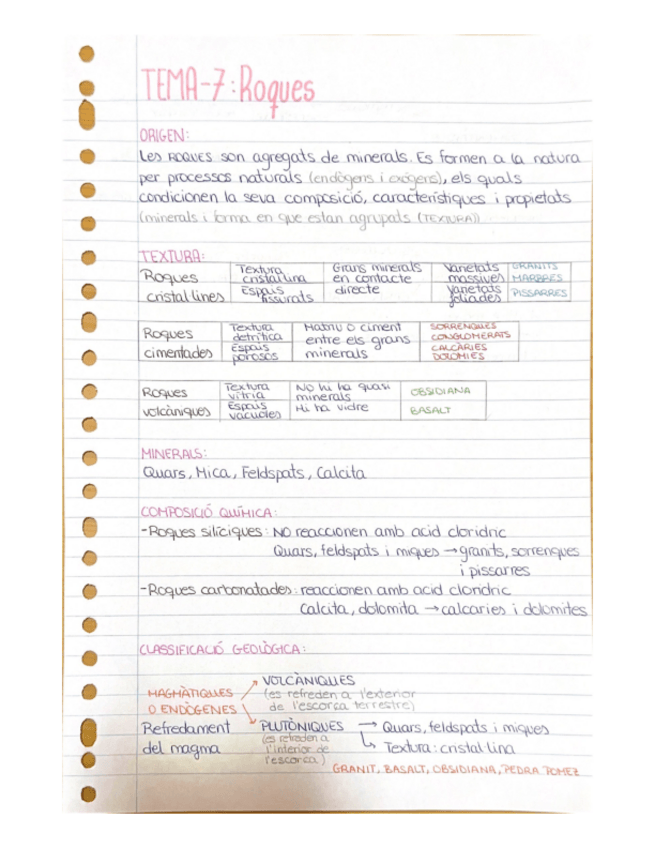 TEMA-7: Roques
ORIGEN:
Les ROQUES son agregats de minerals. Es formen a la natura
per processos naturals (endògens i exògens), els quals
condicionen la seva composició, característiques i propietats
(minerals i forma en que estan agrupats (TEXTURA))
TEXTURA:
Roques cristal·lines
Textura cristal·lina
Espais fissurats
Grans minerals en contacte directe
Varietats massives
Varietats foliades
GRANITS
MARBRES
PISSARRES
Roques cimentades
Textura detrítica
Espais porosos
Matriu o ciment entre els grans minerals
SORRENQUES
CONGLOMERATS
CALCÀRIES
DOLOMIES
Roques volcàniques
Textura vítria
Espais vacuoles
No hi ha quasi minerals
Hi ha vidre
OBSIDIANA
BASALT
MINERALS:
Quars, Mica, Feldspats, Calcita
COMPOSICIÓ QUÍMICA:
-Roques silíciques: NO reaccionen amb acid cloridric
Quars, feldspats i miques → granits, sorrenques
i pissarres
-Roques carbonatades: reaccionen amb acid cloridric
Calcita, dolomita → calcaries i dolomites
CLASSIFICACIÓ GEOLÒGICA:
MAGMÀTIQUES
O ENDÒGENES
Refredament
del magma
VOLCÀNIQUES
(es refreden a l'exterior
de l'escorça terrestre)
PLUTÒNIQUES
(es refreden a
l'interior de
l'escorça)
→ Quars, feldspats i miques
↳ Textura: cristal·lina
GRANIT, BASALT, OBSIDIANA, PEDRA TOMEZ